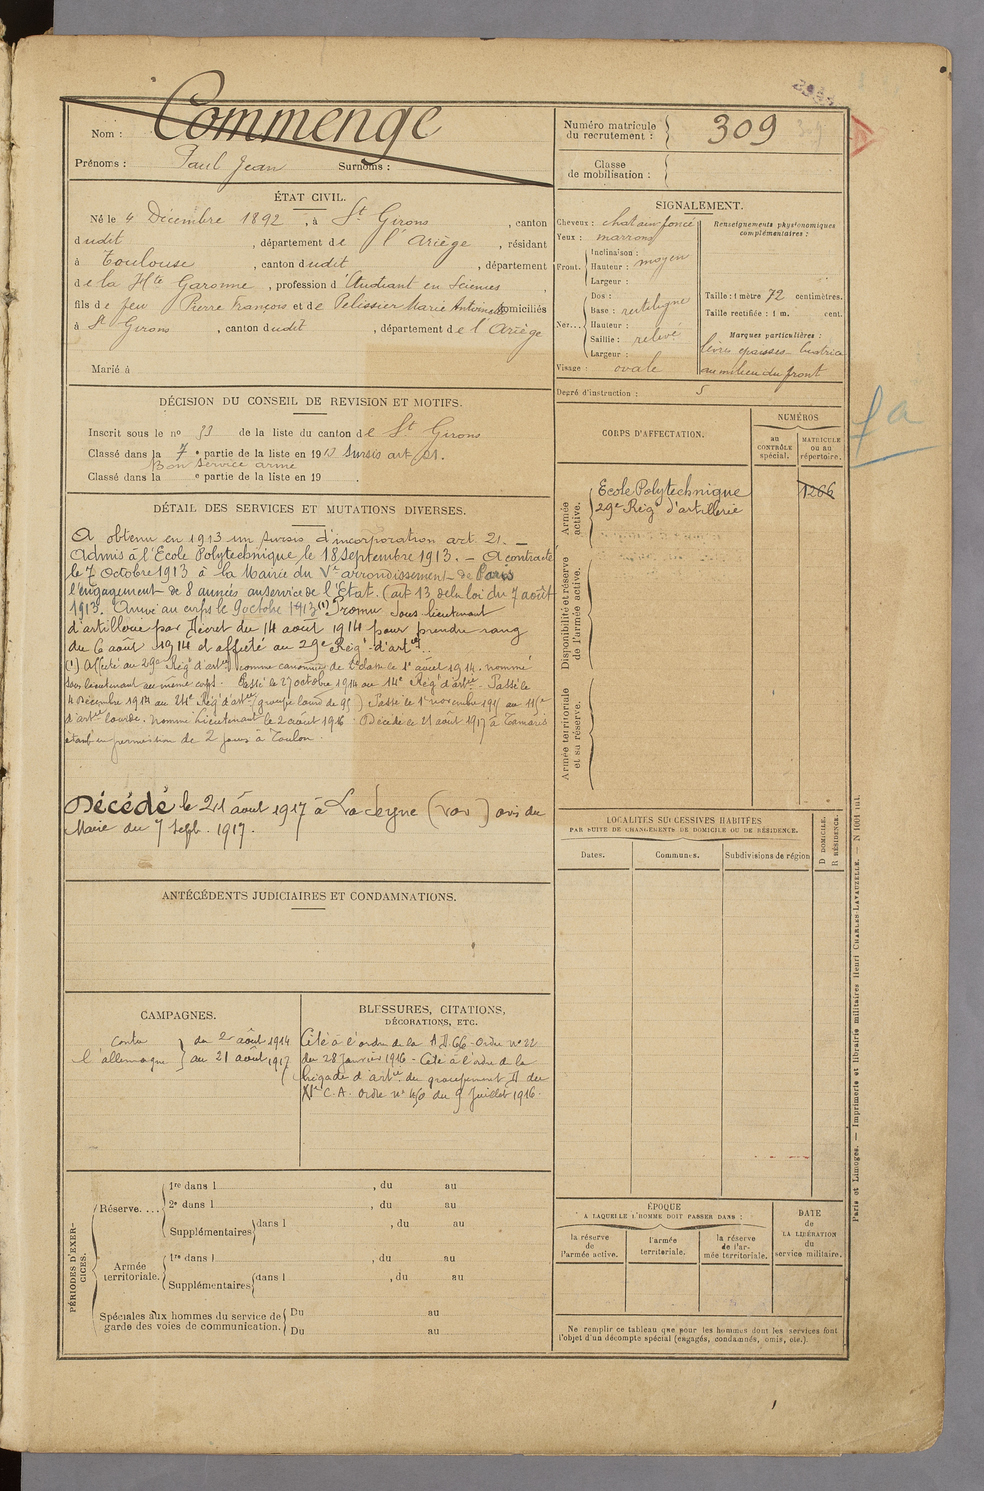 Nom : Commenge
Prénoms : Paul Jean Surnoms :
Numéro matricule
du recrutement : 309
Classe
de mobilisation :
ÉTAT CIVIL.
Né le 4 Décembre 1892, à St Girons, canton
dudit, département de l'Ariège, résidant
à Toulouse, canton dudit, département
de la Hte Garonne, profession d'Etudiant en Sciences,
fils de feu Pierre François et de Pelissier Marie Antoinette domiciliés
à St Girons, canton dudit, département de l'Ariège
Marié à
SIGNALEMENT.
Cheveux : chatain foncé
Yeux : marrons
Front. Inclinaison :
Hauteur : moyen
Largeur :
Nez... Dos :
Base : rectiligne
Hauteur :
Saillie : relevé
Largeur :
Visage : ovale
Renseignements physionomiques
complémentaires :
Taille : 1 mètre 72 centimètres.
Taille rectifiée : 1 m. cent.
Marques particulières :
lèvres épaisses cicatrice
au milieu du front
Degré d'instruction : 5
DÉCISION DU CONSEIL DE REVISION ET MOTIFS.
Inscrit sous le no 53 de la liste du canton de St Girons
Classé dans la 7e partie de la liste en 1913 Sursis art 21.
Bon service armé
Classé dans la e partie de la liste en 19
DÉTAIL DES SERVICES ET MUTATIONS DIVERSES.
A obtenu en 1913 un sursis d'incorporation art. 21. —
Admis à l'Ecole Polytechnique le 18 septembre 1913. — A contracté
le 7 Octobre 1913 à la Mairie du Ve arrondissement de Paris
l'engagement de 8 années au service de l'Etat. (art 13 de la loi du 7 août
1913. Arrivé au corps le 9 octobre 1913 (1) Promu sous lieutenant
d'artillerie par Décret du 14 août 1914 pour prendre rang
du 6 août 1914 et affecté au 29e Régt d'artie.
(1) Affecté au 29e Régt d'artie comme canonnier de 2e classe le 1er août 1914. nommé
sous lieutenant au même corps. Passé le 27 octobre 1914 au 14e Régt d'artie - Passé le
4 Décembre 1914 au 24e Régt d'artie (groupe lourd de 95) Passé le 1er novembre 1915 au 115e
d'artie lourde. nommé Lieutenant le 2 août 1916 - Décédé le 21 août 1917 à Tamaris
étant en permission de 2 jours à Toulon.
Décédé le 21 août 1917 à La Seyne (Var) avis du
Maire du 7 Sept. 1917.
CORPS D'AFFECTATION.
NUMÉROS
au
CONTRÔLE
spécial.
MATRICULE
ou au
répertoire.
Armée
active.
Ecole Polytechnique 1266
29e Régt d'artillerie
Disponibilité et réserve
de l'armée active.
Armée territoriale
et sa réserve.
fa
LOCALITÉS SUCCESSIVES HABITÉES
PAR SUITE DE CHANGEMENTS DE DOMICILE OU DE RÉSIDENCE.
Dates. Communes. Subdivisions de région
D DOMICILE.
R RÉSIDENCE.
ANTÉCÉDENTS JUDICIAIRES ET CONDAMNATIONS.
CAMPAGNES.
Contre
l'allemagne
du 2 août 1914
au 21 août 1917
BLESSURES, CITATIONS,
DÉCORATIONS, ETC.
Cité à l'ordre de la A.D. 66 - Ordre no 22
du 28 Janvier 1916 - Cité à l'ordre de la
brigade d'artie du groupement A du
XIe C.A. Ordre no 40 du 9 Juillet 1916.
PÉRIODES D'EXER-
CICES.
Réserve....
1re dans l , du au
2e dans l , du au
Supplémentaires dans l , du au
Armée
territoriale.
1re dans l , du au
Supplémentaires dans l , du au
Spéciales aux hommes du service de
garde des voies de communication.
Du au
Du au
ÉPOQUE
A LAQUELLE L'HOMME DOIT PASSER DANS :
la réserve
de
l'armée active.
l'armée
territoriale.
la réserve
de l'ar-
mée territoriale.
DATE
de
LA LIBÉRATION
du
service militaire.
Ne remplir ce tableau que pour les hommes dont les services font
l'objet d'un décompte spécial (engagés, condamnés, omis, etc.).
Paris et Limoges. — Imprimerie et librairie militaires Henri CHARLES-LAVAUZELLE. — N 1004 int.